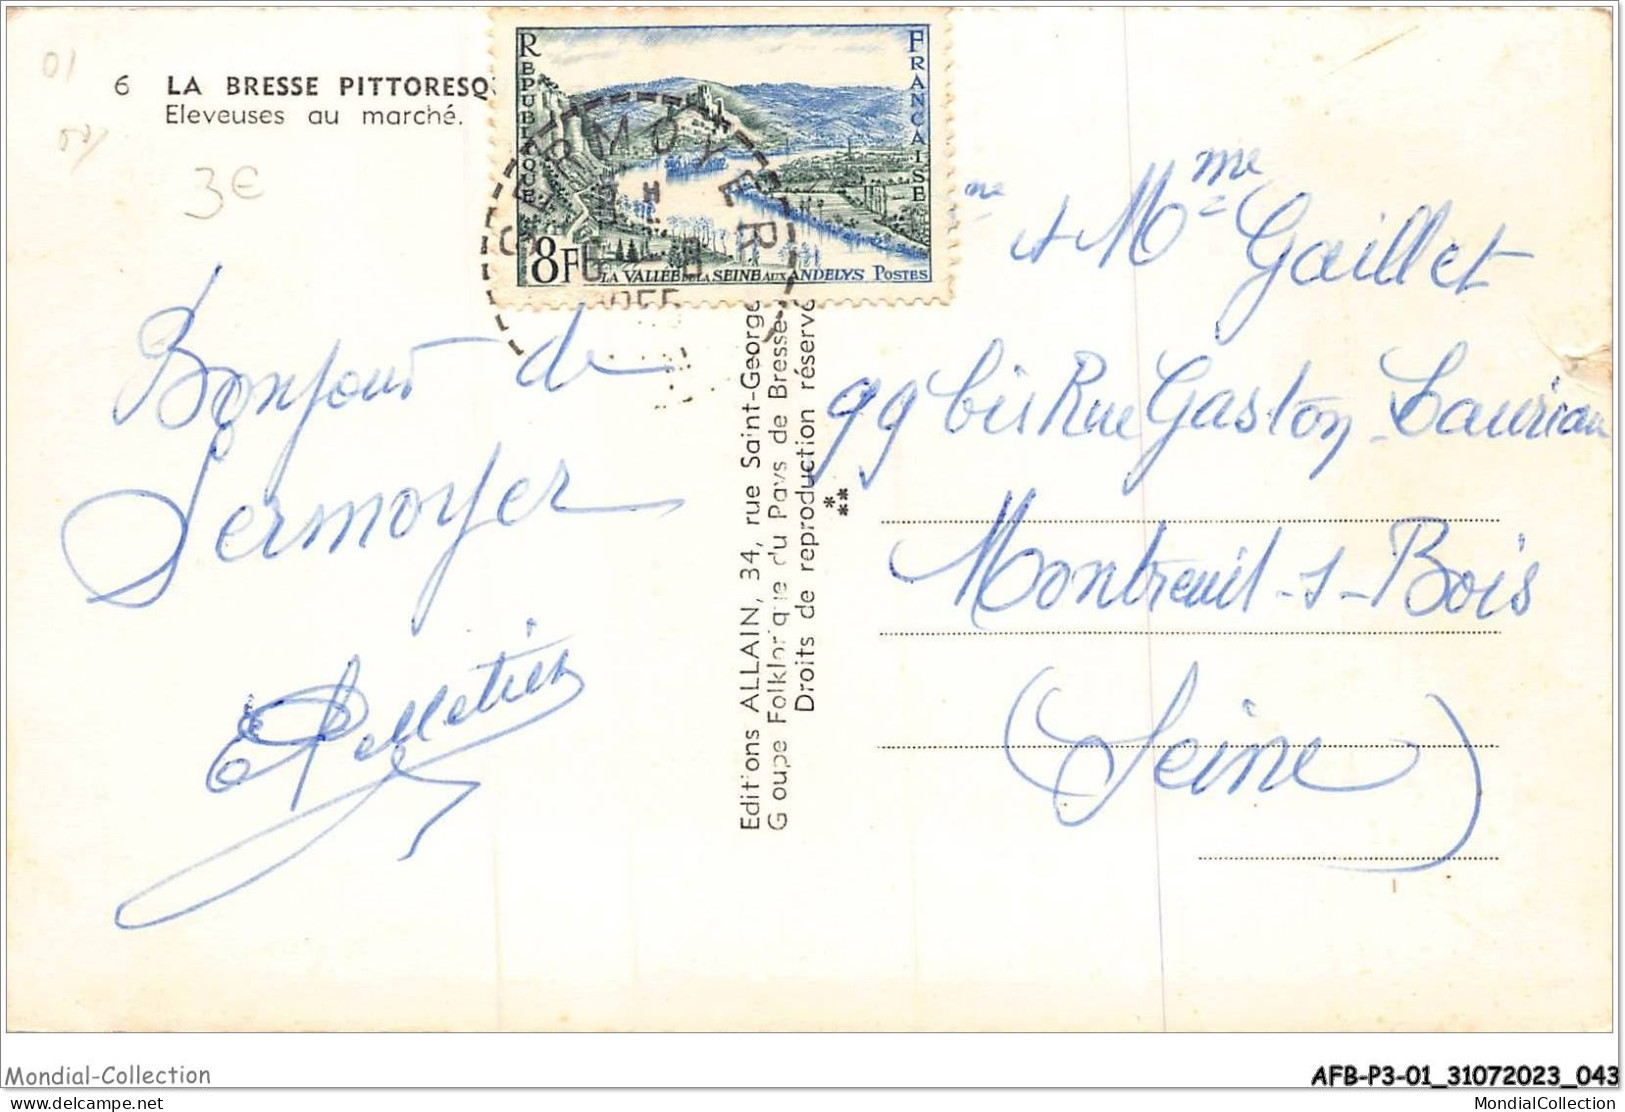 01
6 LA BRESSE PITTORESQ
Eleveuses au marché.
3€
REPUBLIQUE FRANCAISE
8F
LA VALLÉE DE LA SEINE AUX ANDELYS POSTES
SERMOYER
Bonjour de
Sermoyer
E Pelletier
Editions ALLAIN, 34, rue Saint-George
Groupe Folklorique du Pays de Bresse
Droits de reproduction réservé
me + Mme Gaillet
99 bis Rue Gaston Lauriau
Montreuil-s-Bois
(Seine)
Mondial-Collection
AFB-P3-01_31072023_043
delcampe.net
MondialCollection